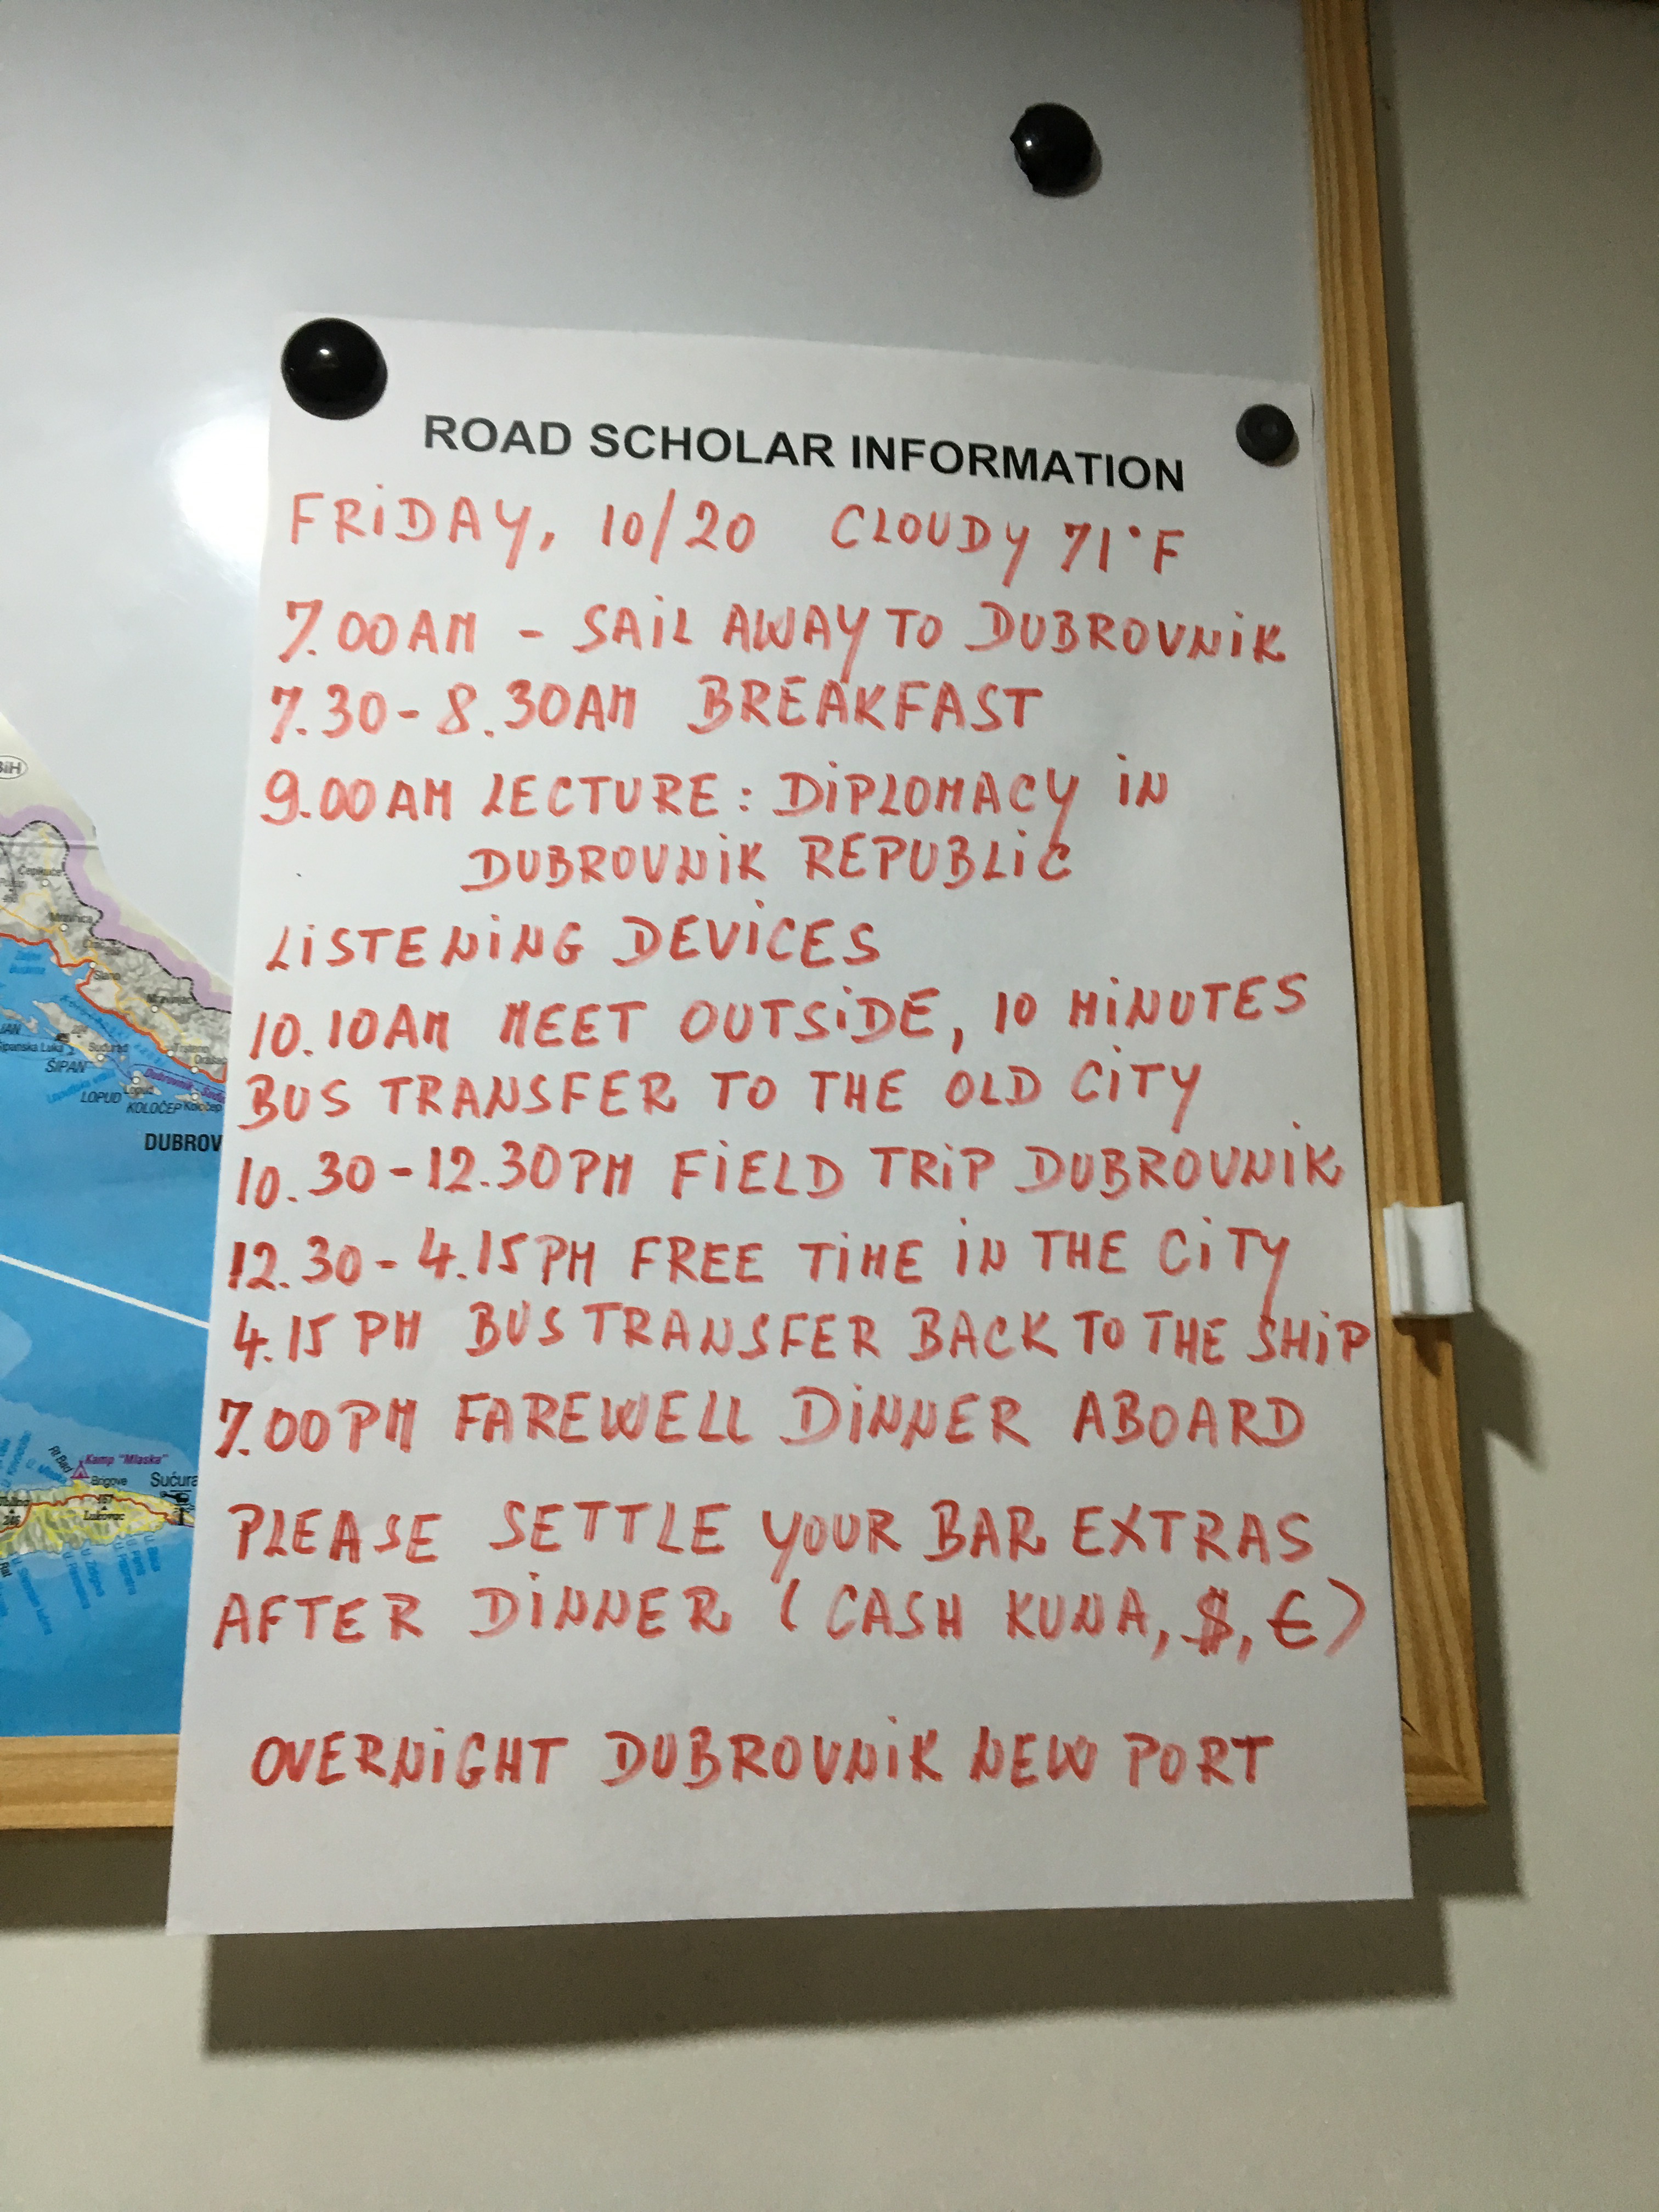 ROAD SCHOLAR INFORMATION
FRiDAY, 10/20 CLOUDY 71°F
7.00AM - SAiL AWAY TO DUBROVNiK
7.30-8.30AM BREAKFAST
9.00AM LECTURE: DiPLOMACY iN
DUBROVNiK REPUBLiC
LiSTENiNG DEViCES
10.10AM MEET OUTSiDE, 10 MiNUTES
BUS TRANSFER TO THE OLD CiTY
10.30-12.30PM FiELD TRiP DUBROVNiK
12.30-4.15PM FREE TiME iN THE CiTY
4.15 PM BUS TRANSFER BACK TO THE SHiP
7.00PM FAREWELL DiNNER ABOARD
PLEASE SETTLE YOUR BAR EXTRAS
AFTER DiNNER (CASH KUNA, $, €)
OVERNiGHT DUBROVNiK NEW PORT
BiH
Slano
ŠIPAN
LOPUD
Lopud
KOLOČEP
DUBROV
Kamp "Mlaska"
Brigove
Sućura